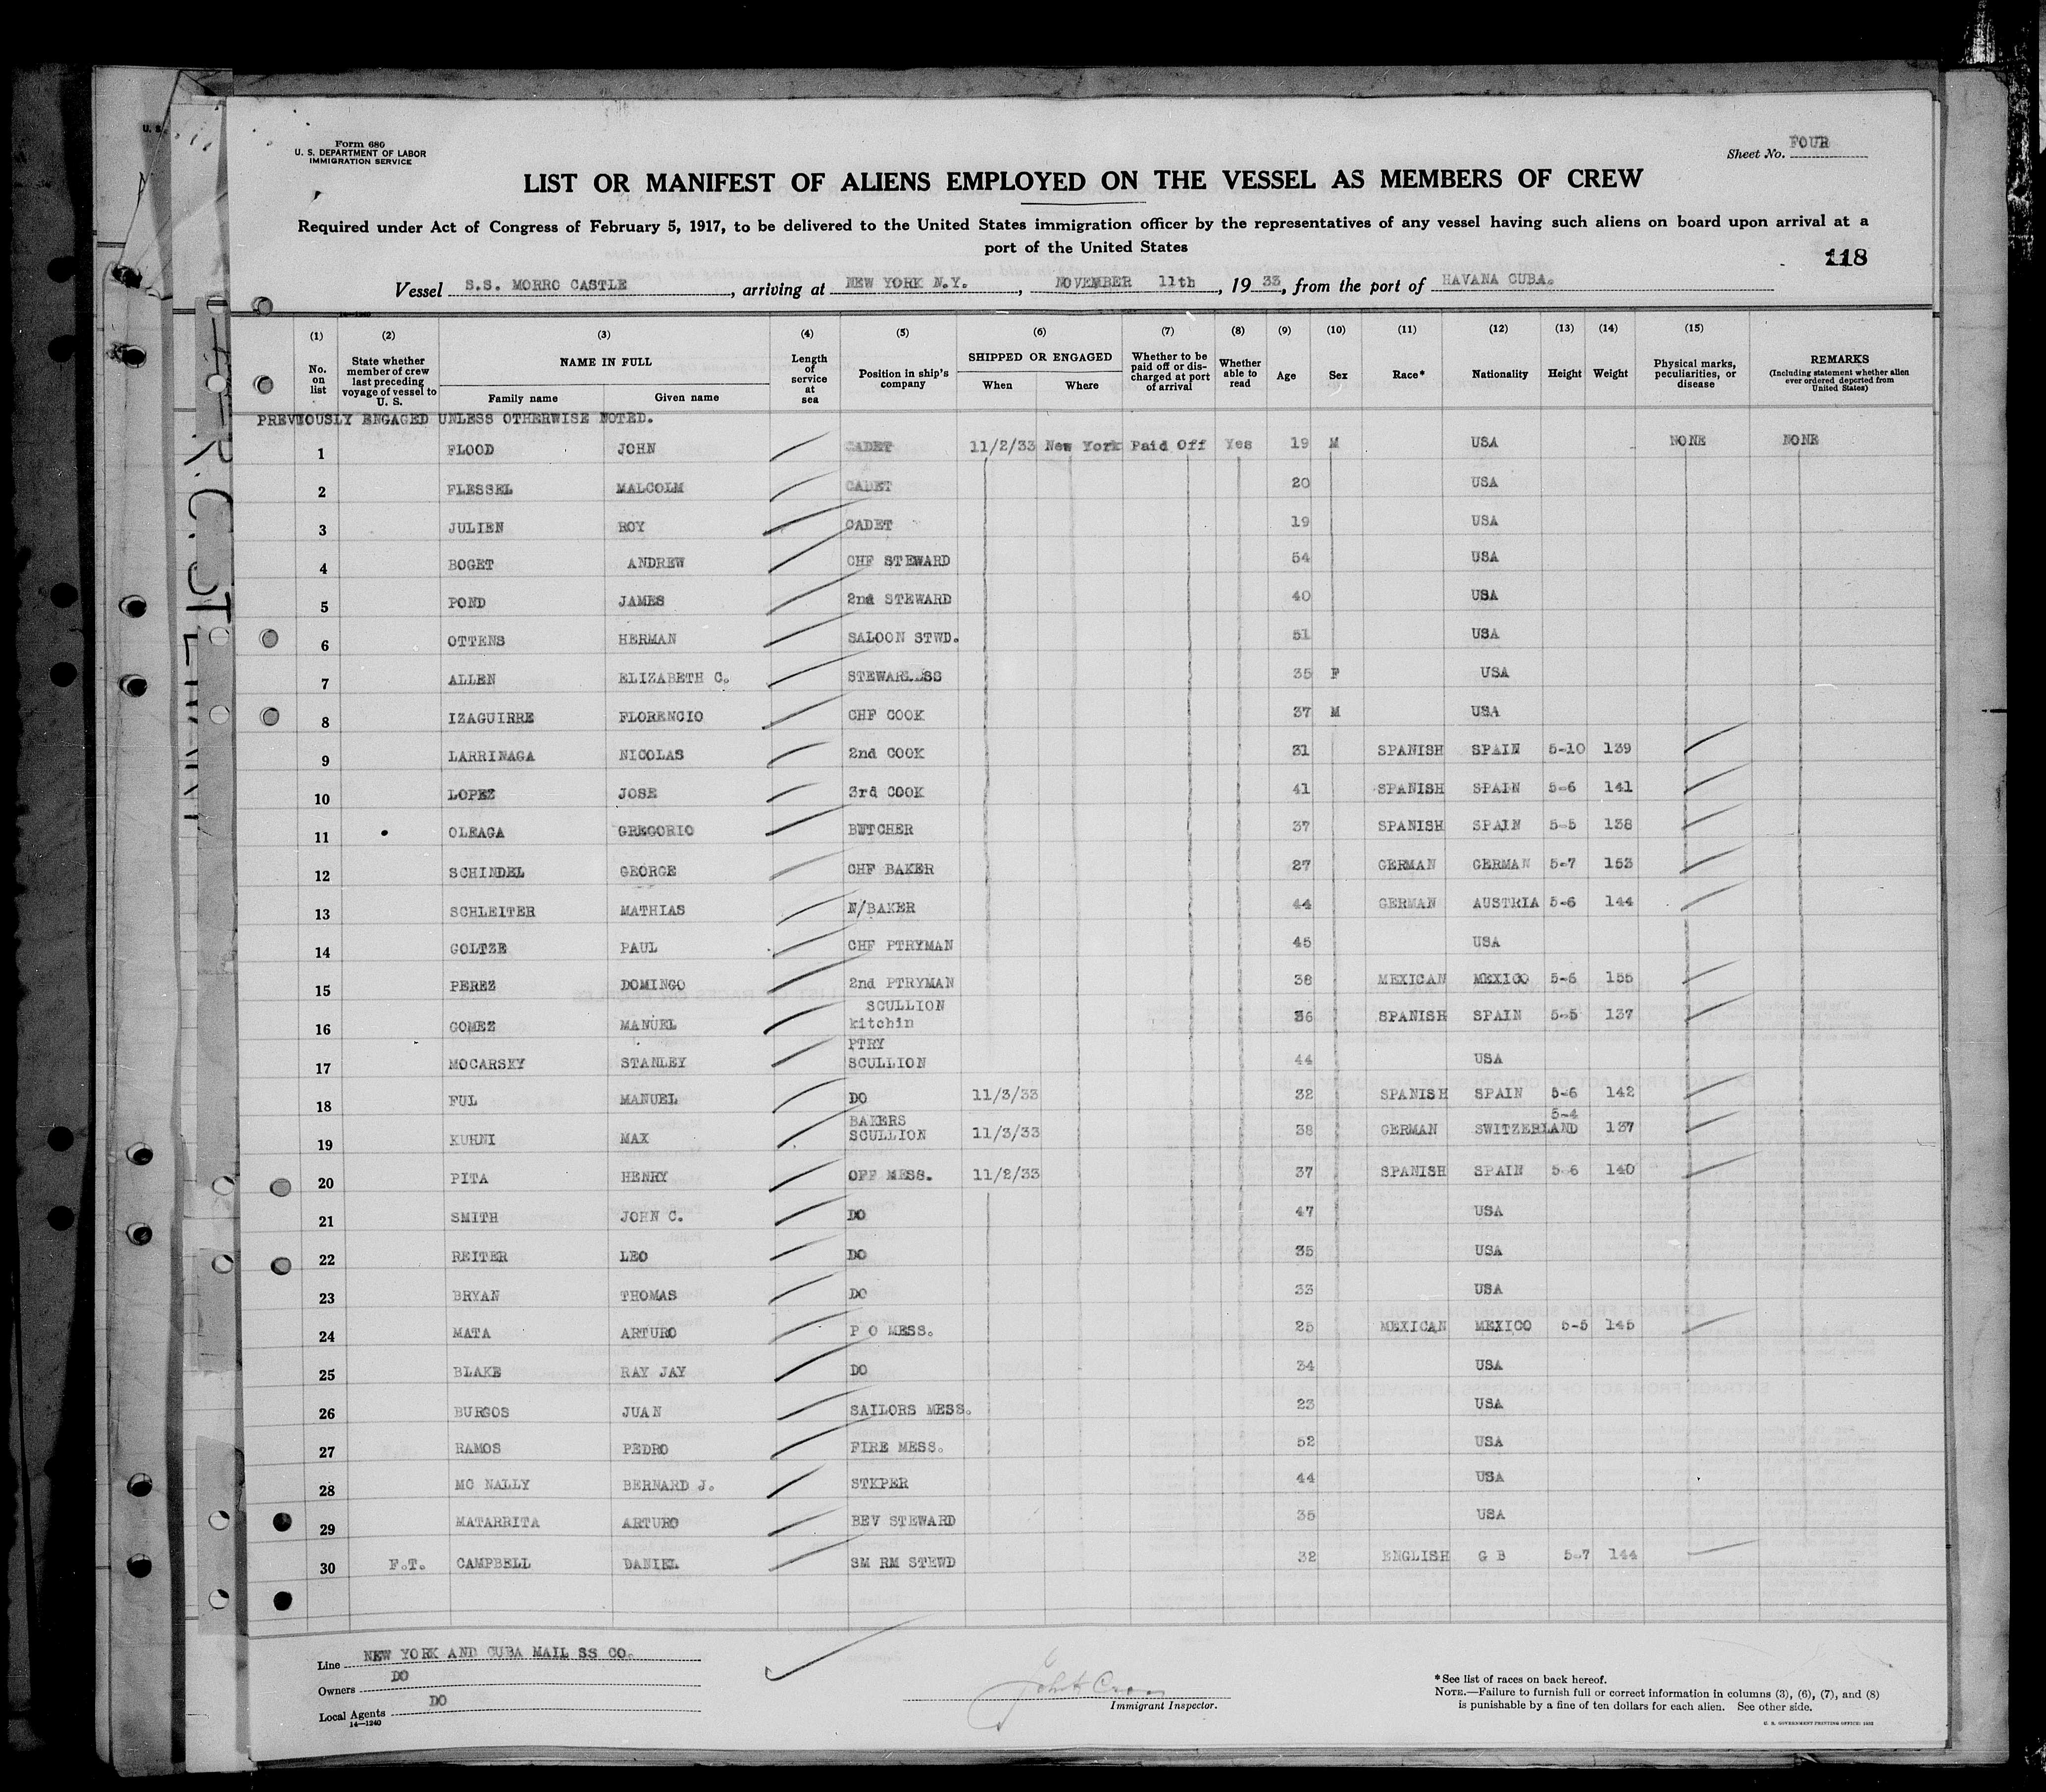 Form 680
U. S. DEPARTMENT OF LABOR
IMMIGRATION SERVICE
Sheet No. FOUR
LIST OR MANIFEST OF ALIENS EMPLOYED ON THE VESSEL AS MEMBERS OF CREW
Required under Act of Congress of February 5, 1917, to be delivered to the United States immigration officer by the representatives of any vessel having such aliens on board upon arrival at a
port of the United States
118
Vessel S.S. MORRO CASTLE, arriving at NEW YORK N.Y., NOVEMBER 11th, 1933, from the port of HAVANA CUBA.
14—1240
(1) (2) (3) (4) (5) (6) (7) (8) (9) (10) (11) (12) (13) (14) (15)
No. on list State whether member of crew last preceding voyage of vessel to U. S. NAME IN FULL Family name Given name Length of service at sea Position in ship's company SHIPPED OR ENGAGED When Where Whether to be paid off or discharged at port of arrival Whether able to read Age Sex Race* Nationality Height Weight Physical marks, peculiarities, or disease REMARKS (Including statement whether alien ever ordered deported from United States)
PREVIOUSLY ENGAGED UNLESS OTHERWISE NOTED.
1 FLOOD JOHN CADET 11/2/33 New York Paid Off Yes 19 M USA NONE NONE
2 FLESSEL MALCOLM CADET 20 USA
3 JULIEN ROY CADET 19 USA
4 BOGET ANDREW CHF STEWARD 54 USA
5 POND JAMES 2nd STEWARD 40 USA
6 OTTENS HERMAN SALOON STWD. 51 USA
7 ALLEN ELIZABETH C. STEWARDESS 35 F USA
8 IZAGUIRRE FLORENCIO CHF COOK 37 M USA
9 LARRINAGA NICOLAS 2nd COOK 31 SPANISH SPAIN 5-10 139
10 LOPEZ JOSE 3rd COOK 41 SPANISH SPAIN 5-6 141
11 OLEAGA GREGORIO BUTCHER 37 SPANISH SPAIN 5-5 138
12 SCHINDEL GEORGE CHF BAKER 27 GERMAN GERMAN 5-7 153
13 SCHLEITER MATHIAS N/BAKER 44 GERMAN AUSTRIA 5-6 144
14 GOLTZE PAUL CHF PTRYMAN 45 USA
15 PEREZ DOMINGO 2nd PTRYMAN 38 MEXICAN MEXICO 5-6 155
SCULLION
16 GOMEZ MANUEL kitchin 36 SPANISH SPAIN 5-5 137
PTRY
17 MOCARSKY STANLEY SCULLION 44 USA
18 FUL MANUEL DO 11/3/33 32 SPANISH SPAIN 5-6 142
BAKERS 5-4
19 KUHNI MAX SCULLION 11/3/33 38 GERMAN SWITZERLAND 137
20 PITA HENRY OFF MESS. 11/2/33 37 SPANISH SPAIN 5-6 140
21 SMITH JOHN C. DO 47 USA
22 REITER LEO DO 35 USA
23 BRYAN THOMAS DO 33 USA
24 MATA ARTURO P O MESS. 25 MEXICAN MEXICO 5-5 145
25 BLAKE RAY JAY DO 34 USA
26 BURGOS JUAN SAILORS MESS. 23 USA
27 RAMOS PEDRO FIRE MESS. 52 USA
28 MC NALLY BERNARD J. STKPER 44 USA
29 MATARRITA ARTURO BEV STEWARD 35 USA
30 F.T. CAMPBELL DANIEL SM RM STEWD 32 ENGLISH G B 5-7 144
Line NEW YORK AND CUBA MAIL SS CO.
Owners DO
Local Agents DO
14—1240
Immigrant Inspector.
*See list of races on back hereof.
NOTE.—Failure to furnish full or correct information in columns (3), (6), (7), and (8)
is punishable by a fine of ten dollars for each alien. See other side.